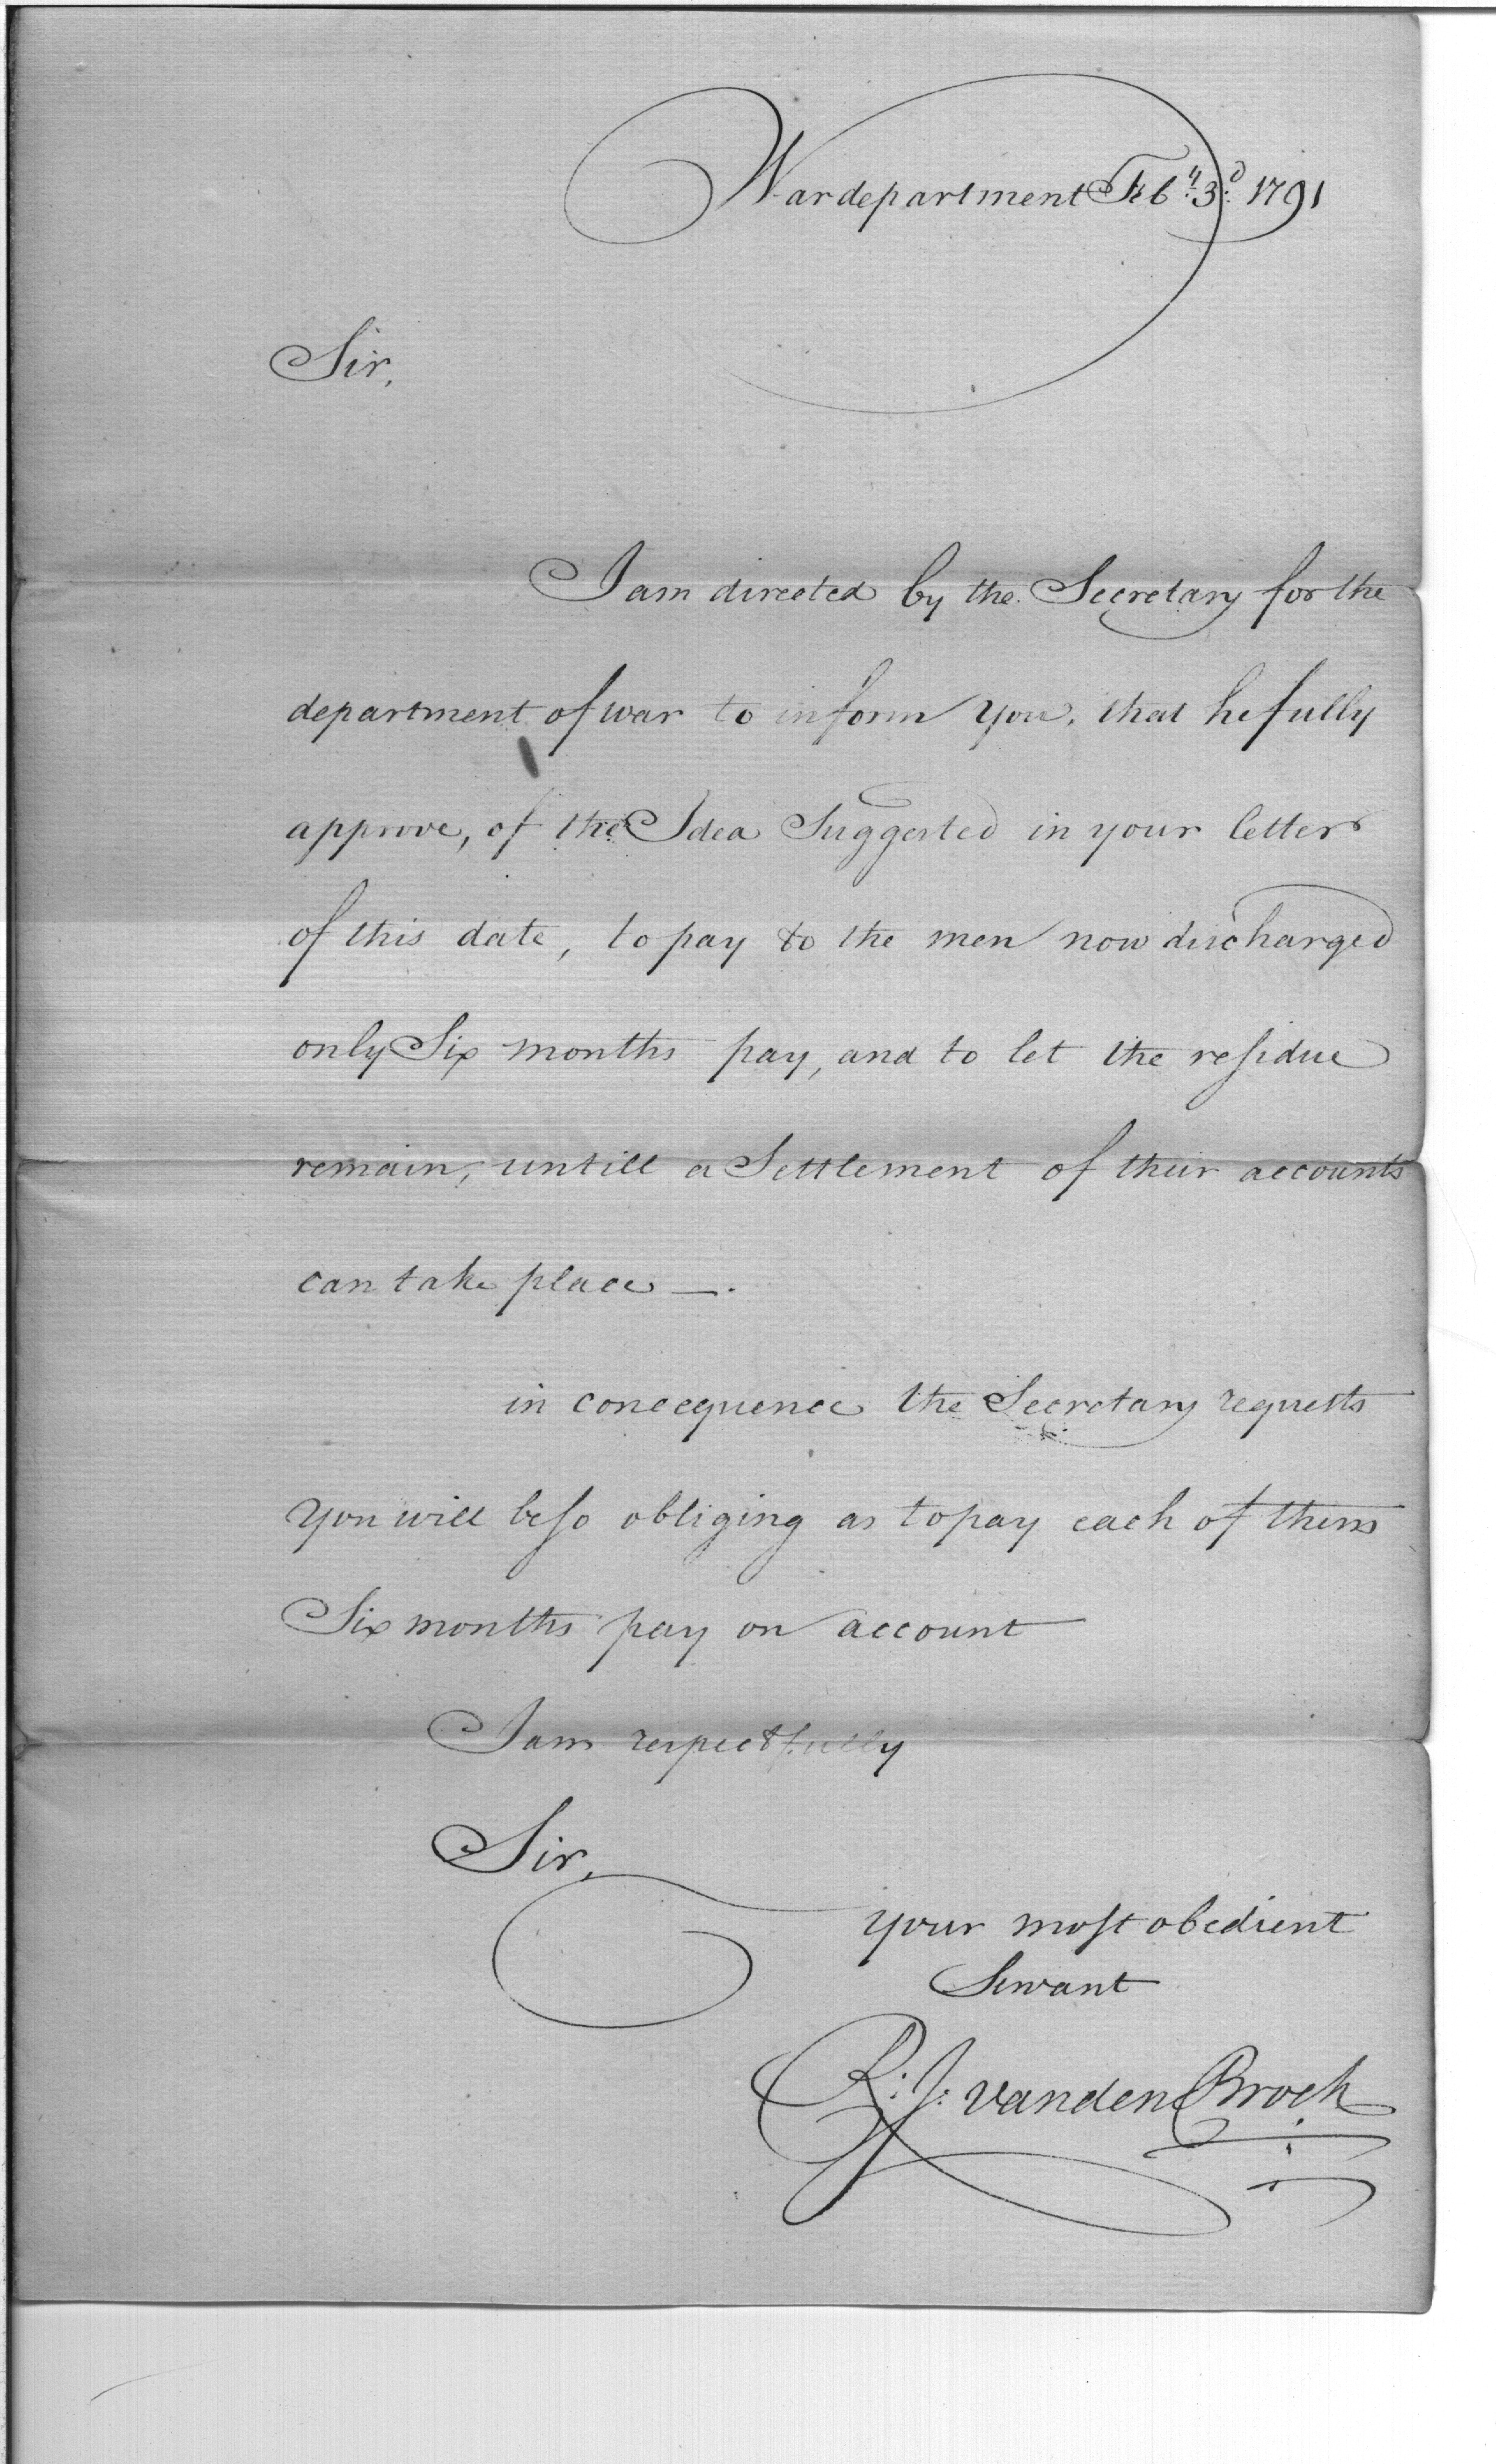 War department Feby 3d 1791
Sir,
I am directed by the Secretary for the
department of war to inform you, that he fully
approve, of the Idea Suggested in your letter
of this date, to pay to the men now discharged
only Six months pay, and to let the residue
remain, untill a Settlement of their accounts
can take place —.
in concequence the Secretary requests
you will be so obliging as to pay each of them
Six months pay on account
I am respectfully
Sir,
your most obedient
Servant
R: J: vanden Broek